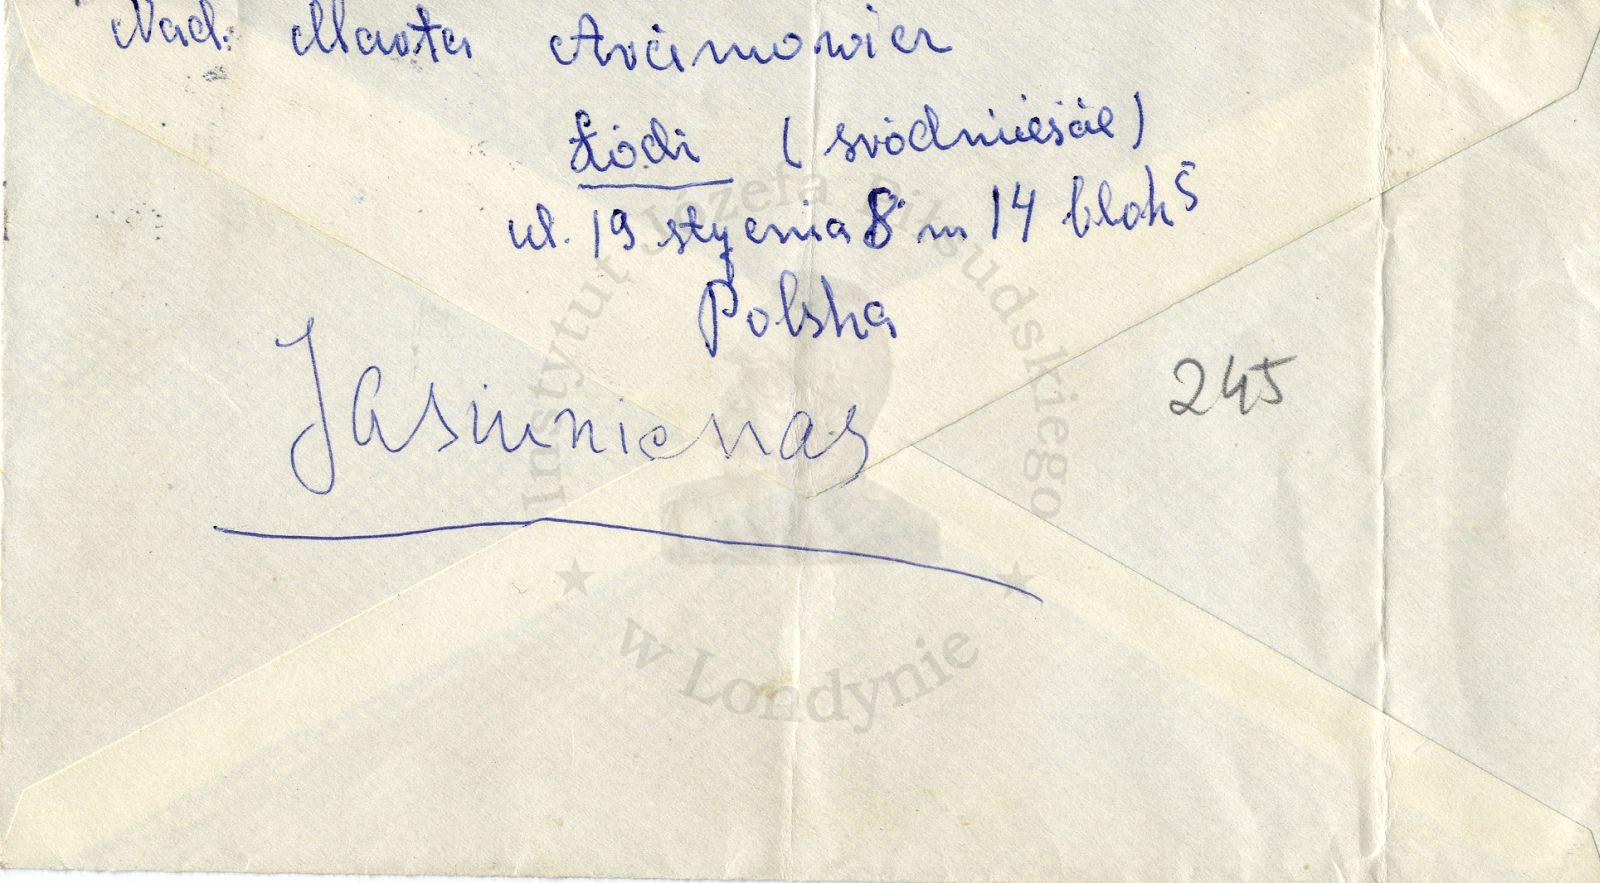 Nad. Marta Arcimowicz
Łódź (śródmieście)
ul. 19 stycznia 8 m 14 blok 5
Polska
Jasiunienas
245
Instytut Józefa Piłsudskiego
w Londynie